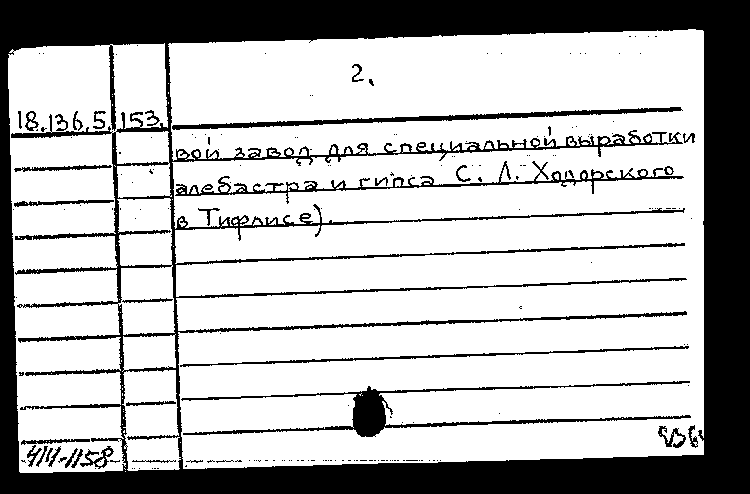 2.
18.136.5. 153.
вой завод для специальной выработки
алебастра и гипса С. Л. Ходорского
в Тифлисе).
414-1158